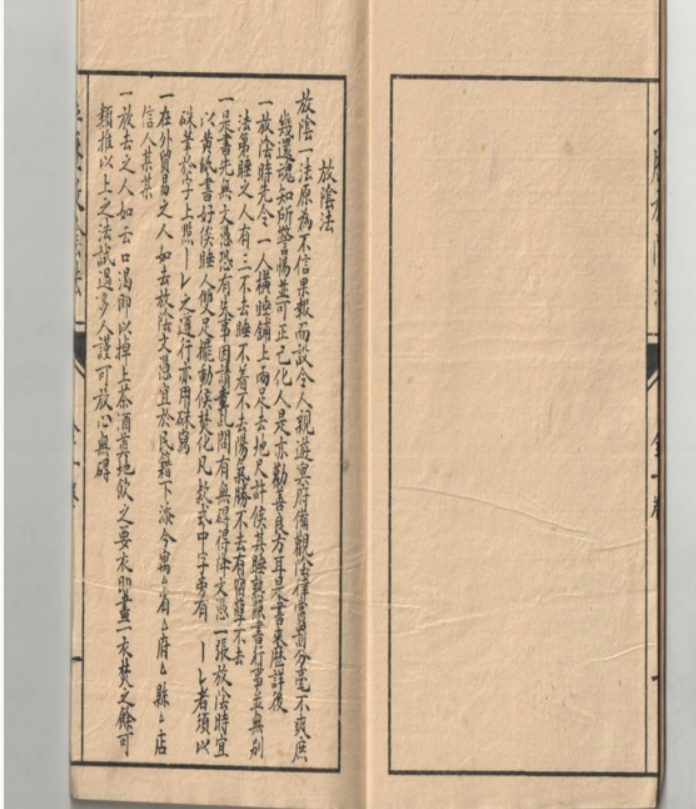 放陰法
放陰一法原為不信果報而設令人親遊冥府備觀法律賞罰分毫不爽庶
幾還魂知所警惕並可正己化人是亦勸善良方耳是書來歷詳後
一放陰時先令一人橫睡鋪上兩足去地尺許俟其睡熟照書行事並無別
法第睡之人有三不去睡不着不去陽氣勝不去有宿孽不去
一是書先無文憑恐有失事因請鸞乩問有無碍得降文憑一張放陰時宜
以黃紙書好俟睡人雙足擺動候焚化凡款式中字旁有丨レ者須以
硃筆於字上照丨レ之運行亦用硃寫
一在外貿易之人如去放陰文憑宜於民籍下添今寓厶省厶府厶縣厶店
信人某某
一放去之人如云口渴即以掉上茶酒奠地飲之要衣即畫一衣焚之餘可
類推以上之法試過多人謹可放心無碍